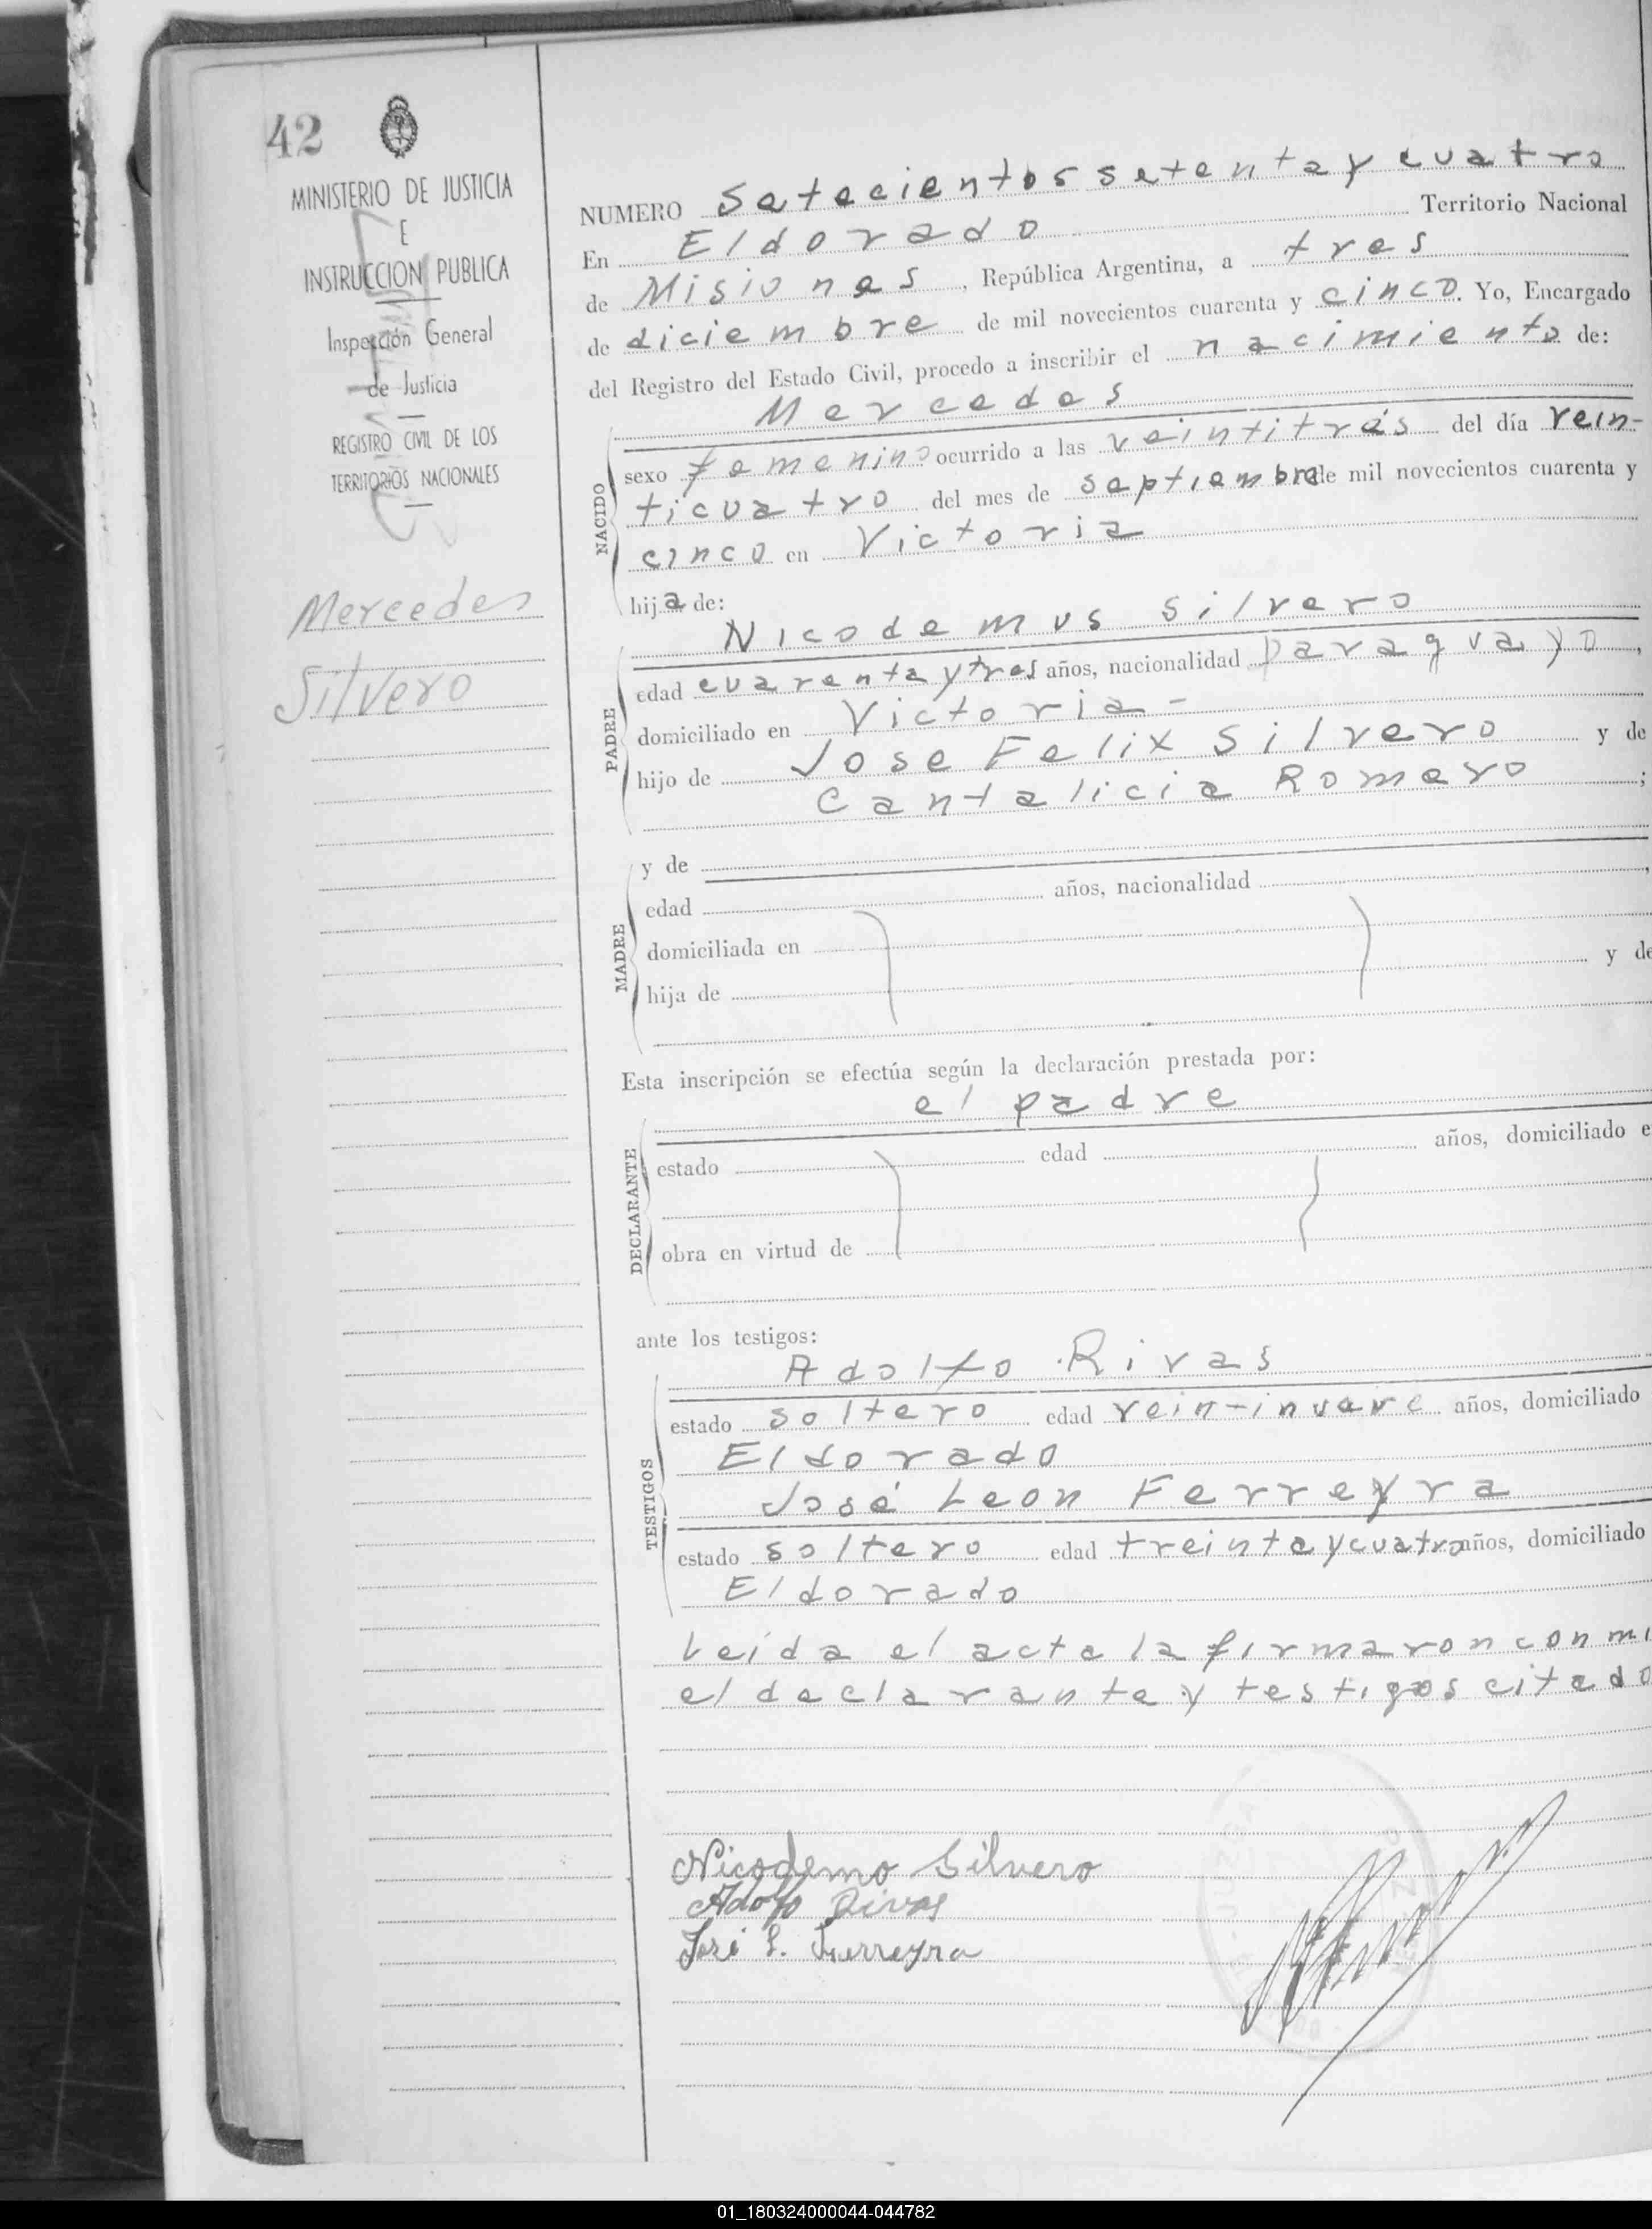 42
MINISTERIO DE JUSTICIA
E
INSTRUCCION PUBLICA
Inspección General
de Justicia
REGISTRO CIVIL DE LOS
TERRITORIOS NACIONALES
Mercedes
Silvero
NUMERO Setecientos setenta y cuatro
En Eldorado Territorio Nacional
de Misiones, República Argentina, a tres
de diciembre de mil novecientos cuarenta y cinco. Yo, Encargado
del Registro del Estado Civil, procedo a inscribir el nacimiento de:
Mercedes
NACIDO
sexo femenino ocurrido a las veintitrés del día vein-
ticuatro del mes de septiembre de mil novecientos cuarenta y
cinco en Victoria
hija de:
Nicodemus Silvero
PADRE
edad cuarenta y tres años, nacionalidad paraguayo,
domiciliado en Victoria-
hijo de Jose Felix Silvero y de
Cantalicia Romero ;
MADRE
y de
edad años, nacionalidad ,
domiciliada en
hija de y de
Esta inscripción se efectúa según la declaración prestada por:
el padre
DECLARANTE
estado edad años, domiciliado e
obra en virtud de
ante los testigos:
Adolfo Rivas
TESTIGOS
estado soltero edad años, domiciliado
Eldorado
José Leon Ferreyra
estado soltero edad treinta y cuatro años, domiciliado
Eldorado
Leída el acta la firmaron con mi
el declarante y testigos citado
Nicodemo Silvero
Adolfo Rivas
José L. Ferreyra
01_180324000044-044782